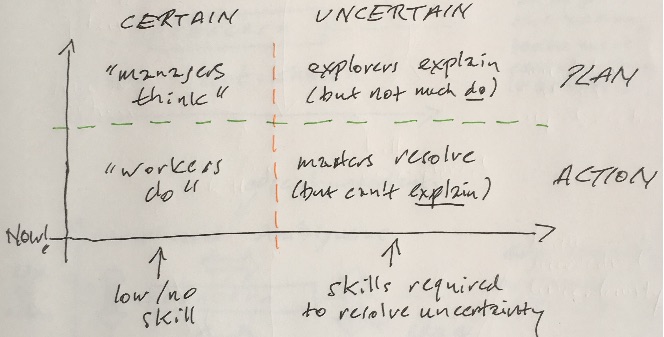 CERTAIN UNCERTAIN
"managers think"
explorers explain
(but not much do)
PLAN
"workers do"
masters resolve
(but can't explain)
ACTION
Now!
low/no skill
skills required
to resolve uncertainty